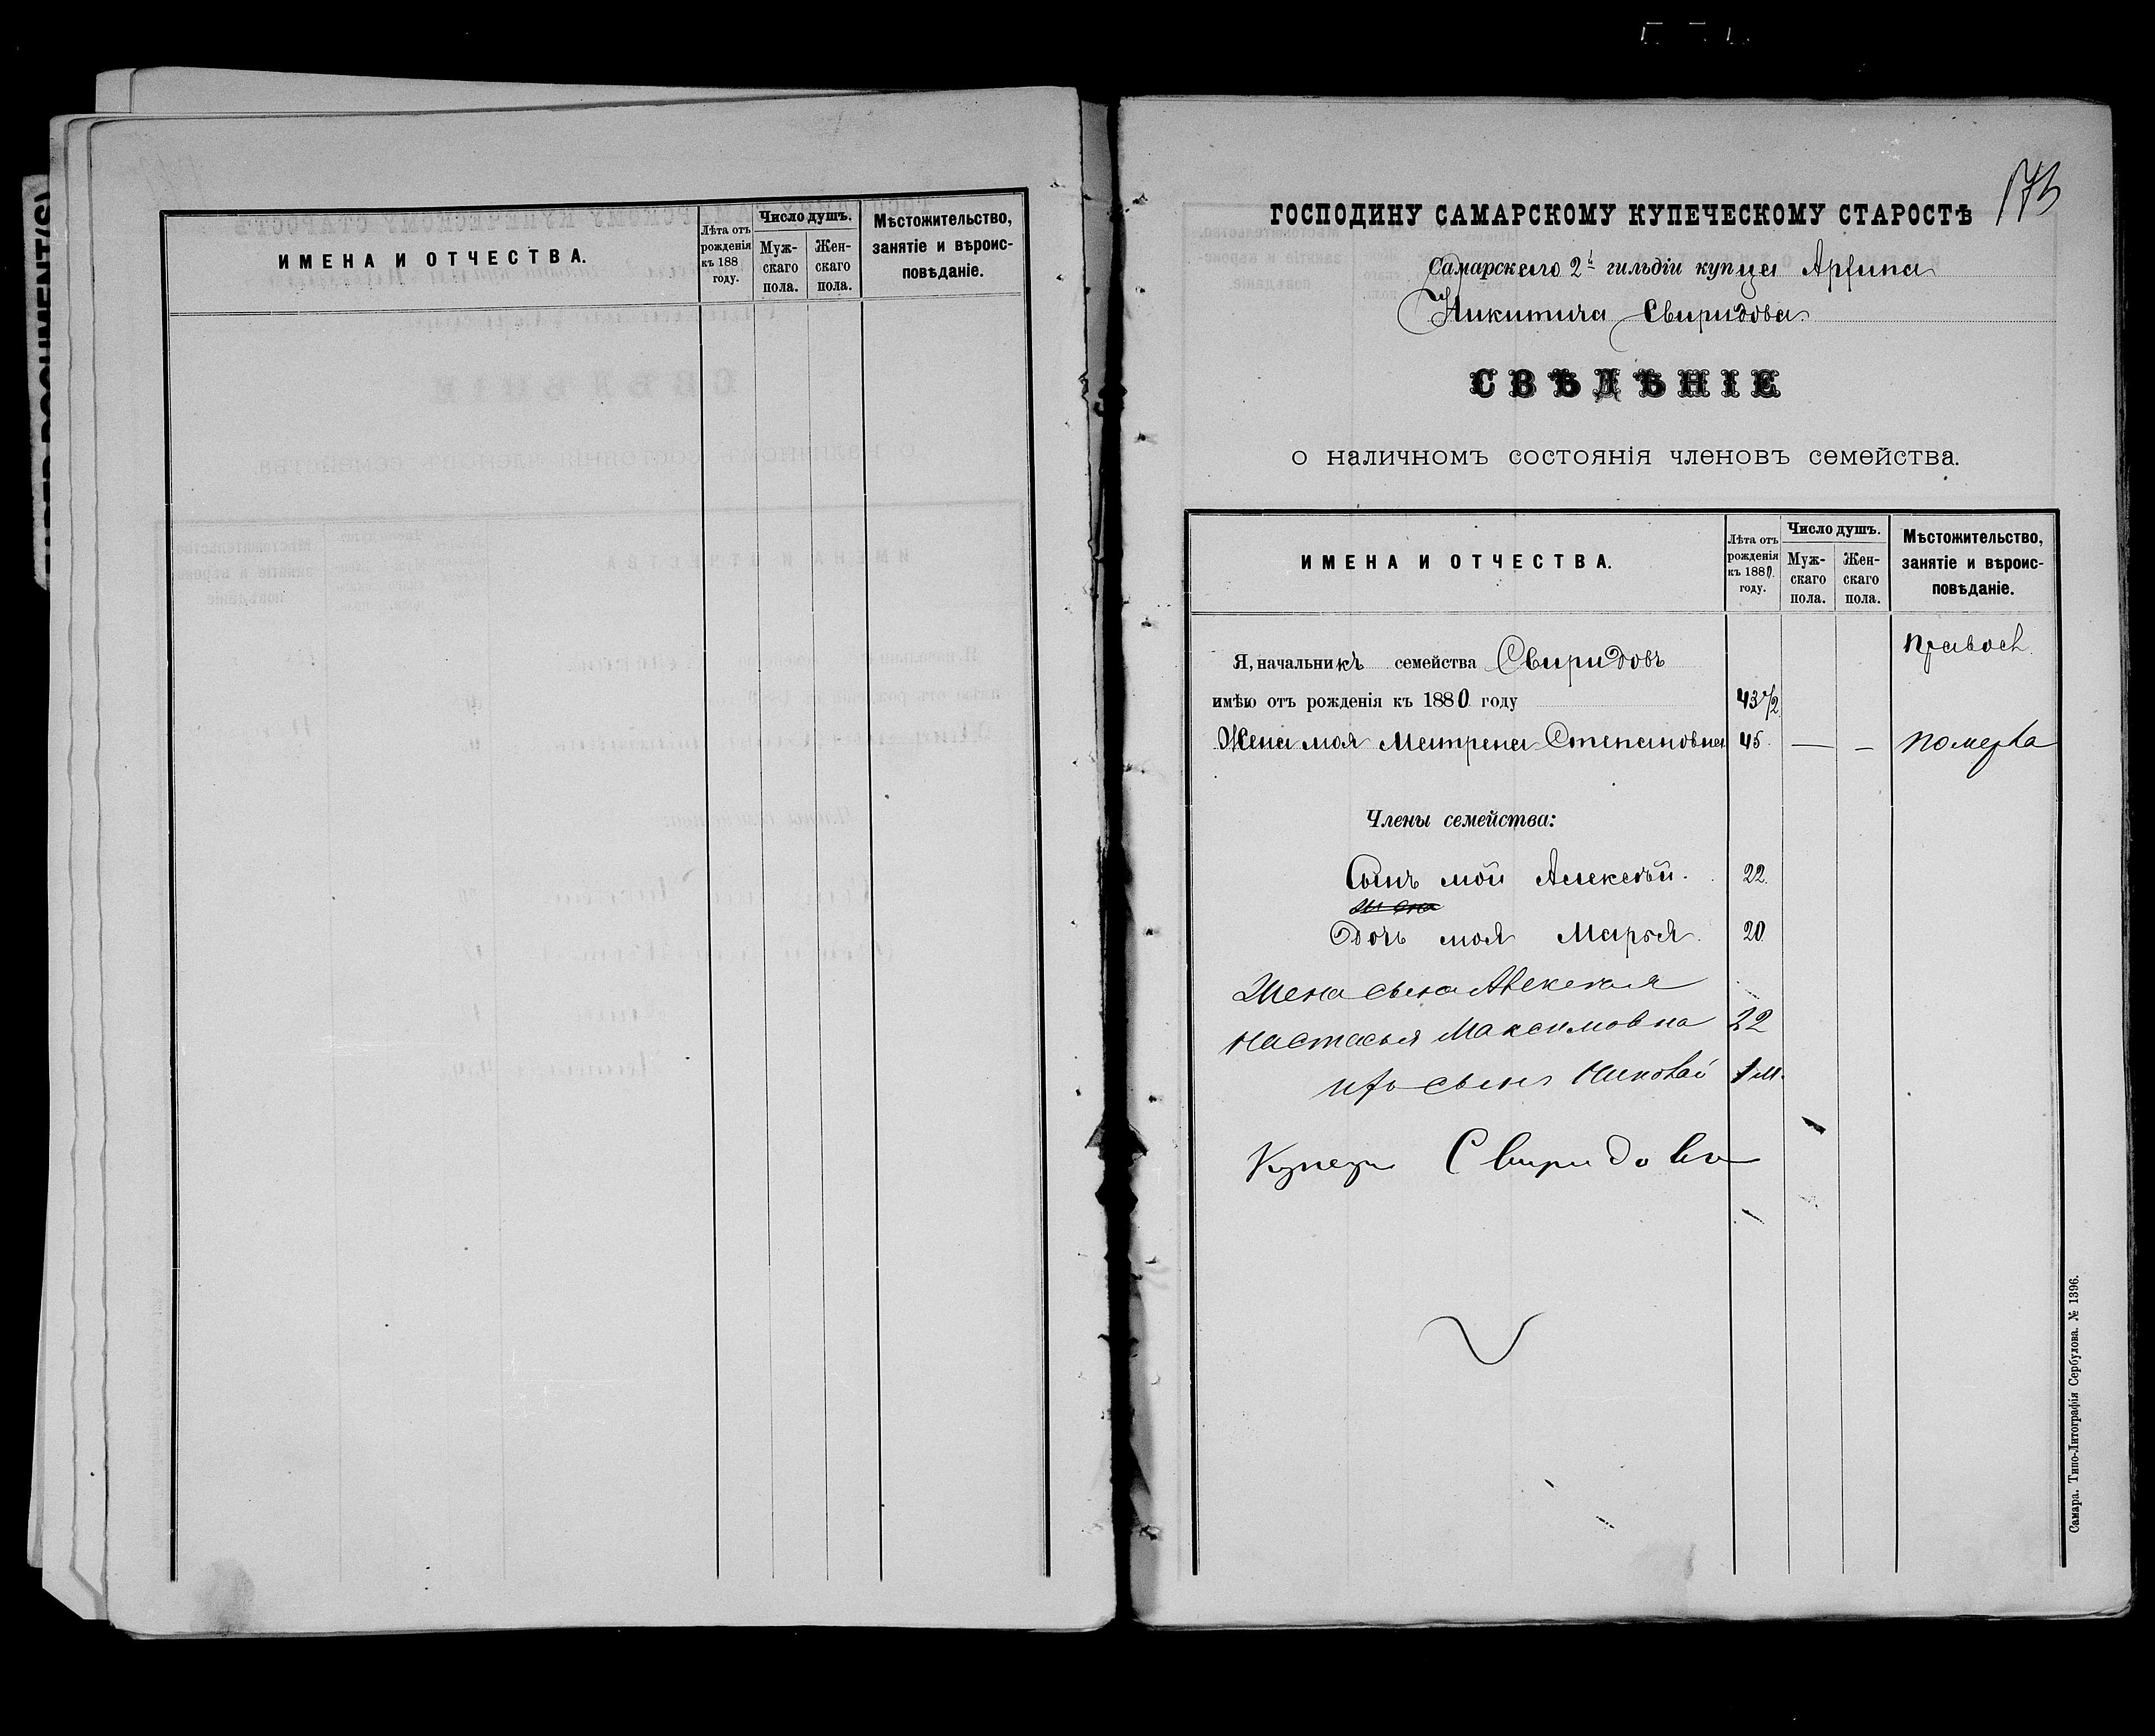 ИМЕНА И ОТЧЕСТВА.
Лѣта отъ рожденія къ 188 году.
Число душъ.
Мужскаго пола.
Женскаго пола.
Мѣстожительство, занятіе и вѣроисповѣданіе.
173
ГОСПОДИНУ САМАРСКОМУ КУПЕЧЕСКОМУ СТАРОСТѢ
Самарскаго 2й гильдіи купца Архипа
Никитича Свиридова
СВѢДѢНІЕ
о наличномъ состоянія членовъ семейства.
ИМЕНА И ОТЧЕСТВА.
Лѣта отъ рожденія къ 1880 году.
Число душъ.
Мужскаго пола.
Женскаго пола.
Мѣстожительство, занятіе и вѣроисповѣданіе.
Я, начальникъ семейства Свиридовъ правосл.
имѣю отъ рожденія къ 1880 году 43 1/2
Жена моя Матрена Степановна 45 — — померла
Члены семейства:
Сынъ мой Алексѣй. 22.
Дочь моя Марья. 20
Жена сына Алексея
Настасья Максимовна 22
ихъ сынъ Николай 1 м.
Купецъ Свиридовъ
Самара. Типо-Литографія Сербулова. № 1396.